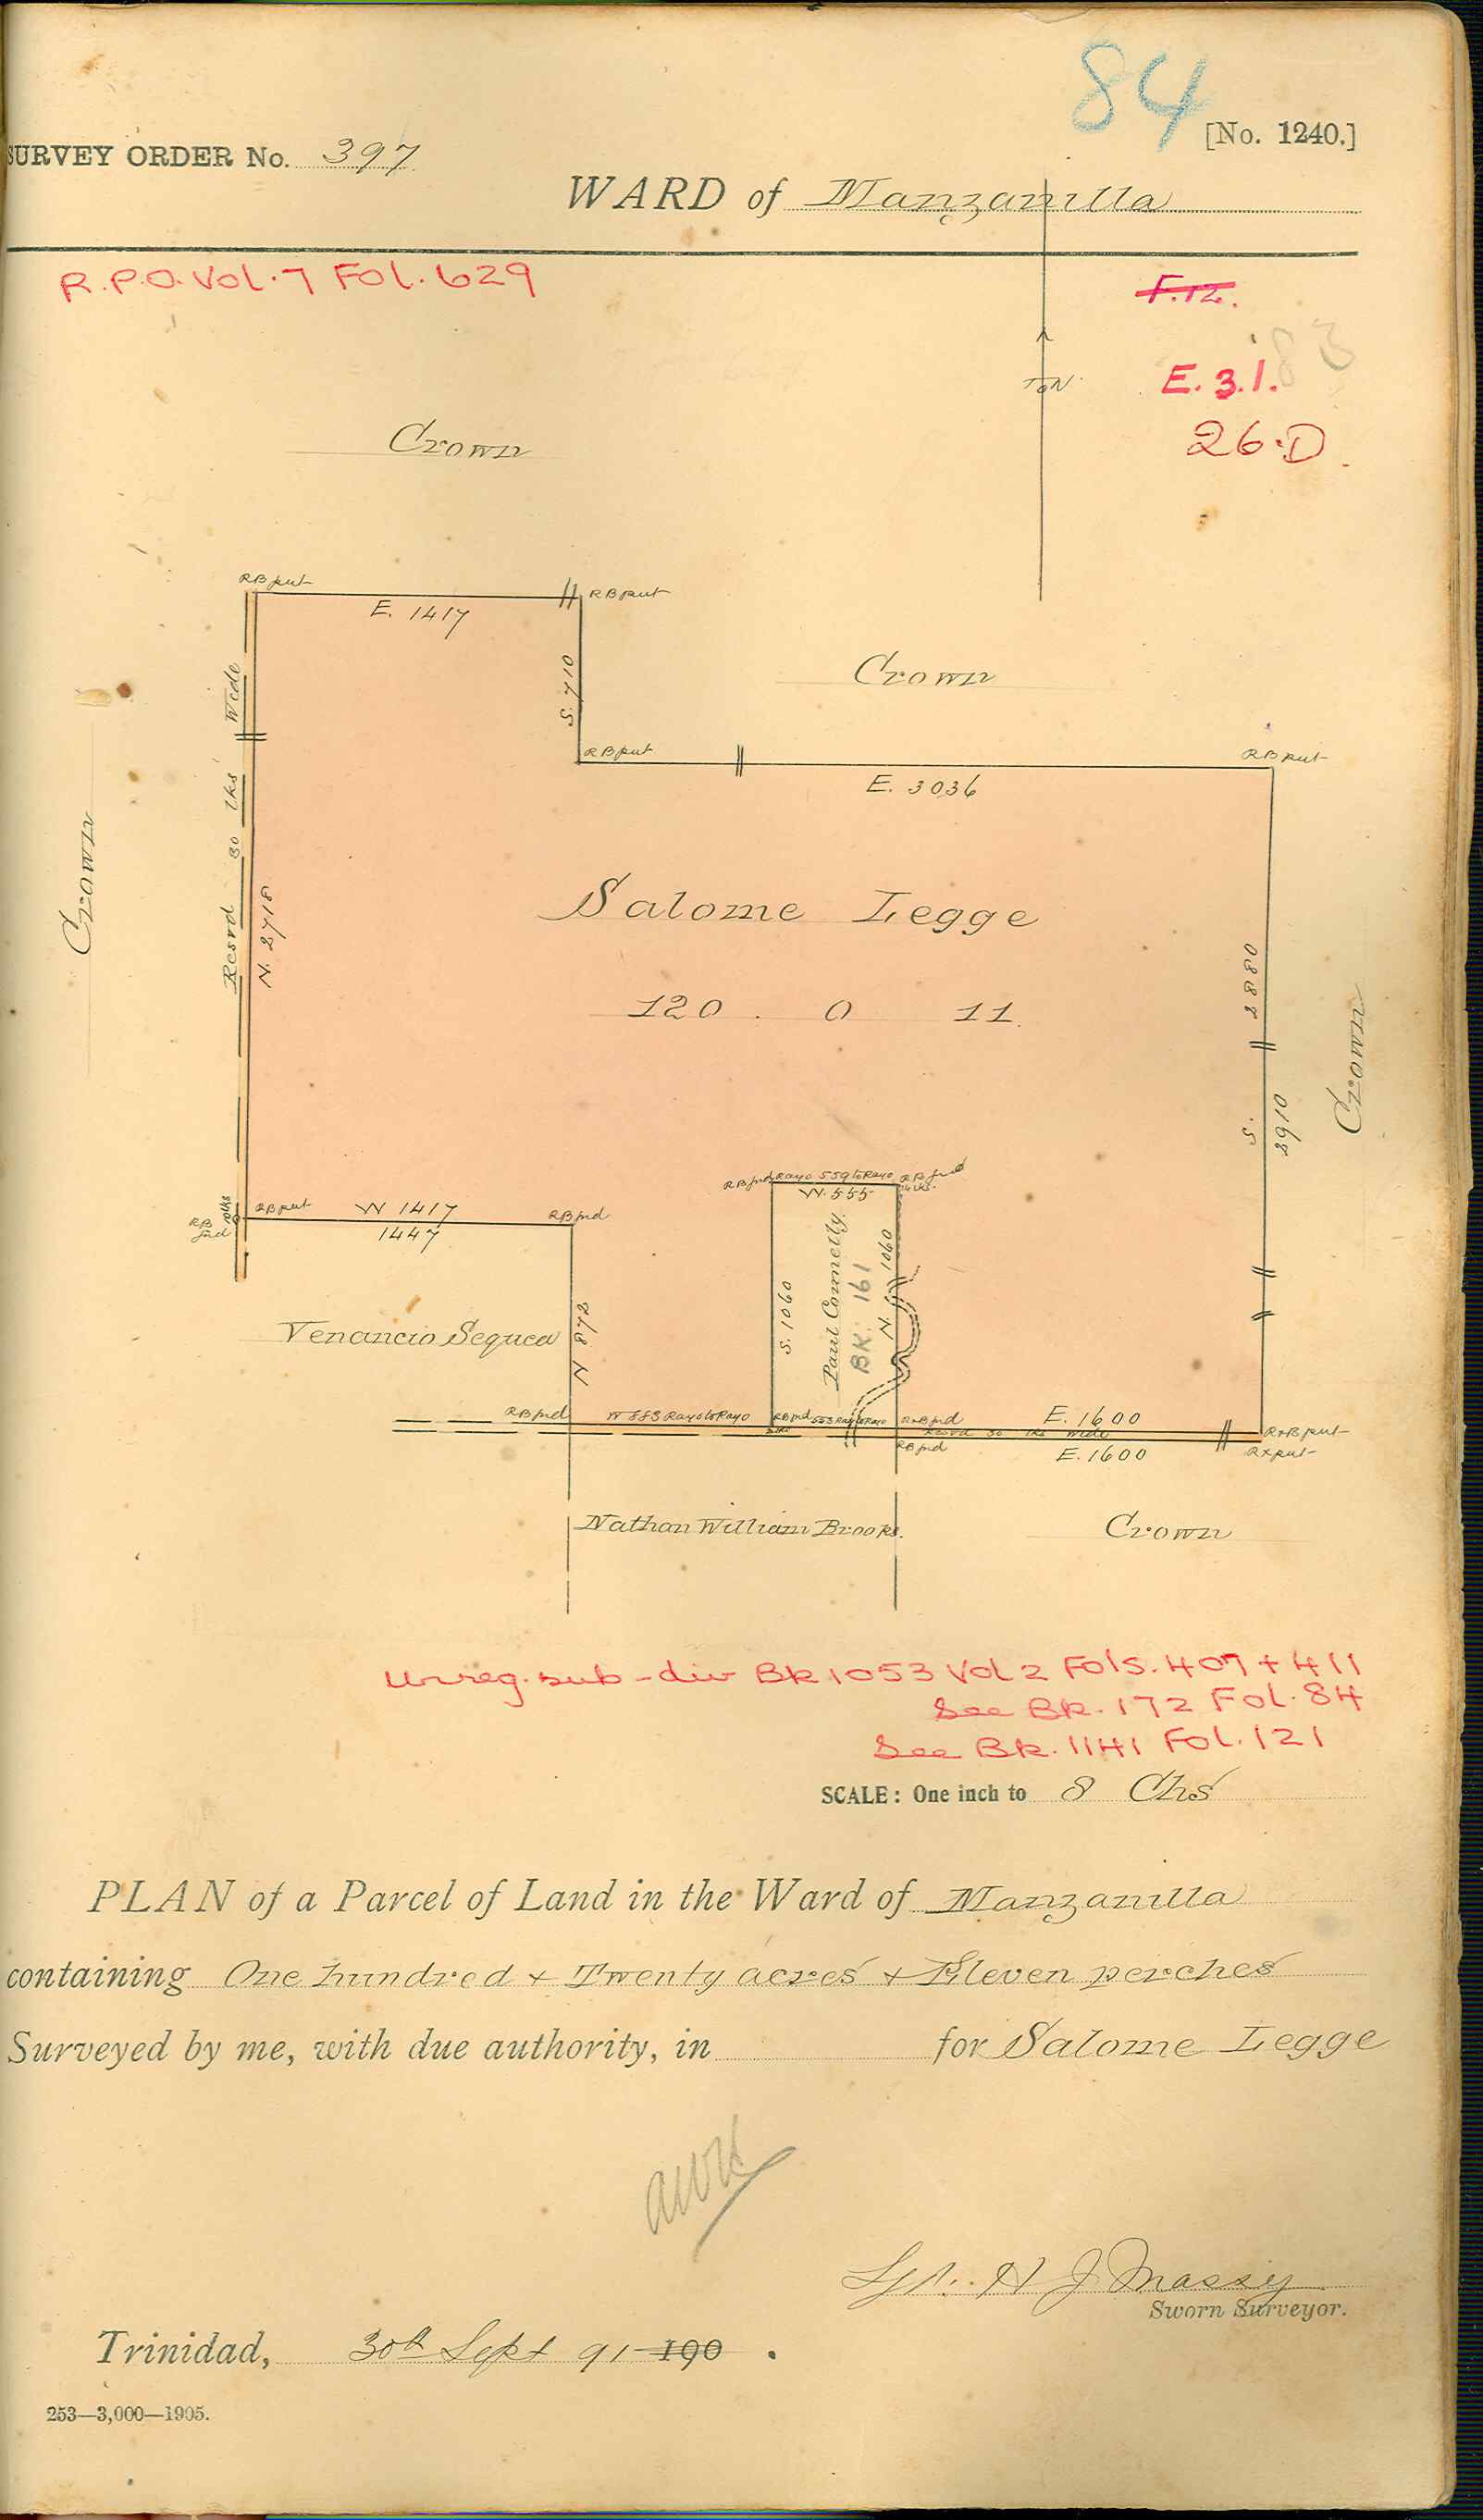 84
[No. 1240.]
SURVEY ORDER No. 397
WARD of Manzanilla
R.P.O. Vol. 7 Fol. 629
F.12.
83
E. 3.1.
26.D.
To N.
Crown
RB put
E. 1417
RB put
S. 710
Crown
RB put
RB put
E. 3036
Resrd 30 lks Wide
N. 2718
Crown
Salome Legge
120 . 0 11.
S. 2880
2910
Crown
RB fnd
RB put
W 1417
RB fnd
1447
RB fnd
Rayo 559 to Rayo
RB fnd
W. 555
S. 1060
Paul Connelly
BK. 161
N. 1060
Venancio Sequea
N 872
RB fnd
W 883 Rayo to Rayo
RB fnd
553 Rayo to Rayo
R+B fnd
E. 1600
Resrd 30 lks wide
R+B put
RB fnd
E. 1600
R+ put
Nathan William Brooks.
Crown
Unreg. sub-div Bk 1053 Vol 2 Fols. 407 + 411
See Bk. 172 Fol. 84
See Bk. 1141 Fol. 121
SCALE: One inch to 8 Chs
PLAN of a Parcel of Land in the Ward of Manzanilla
containing One hundred + Twenty acres + Eleven perches
Surveyed by me, with due authority, in for Salome Legge
Sgd. H J Massy
Sworn Surveyor.
Trinidad, 30th Sept 91 190 .
253—3,000—1905.